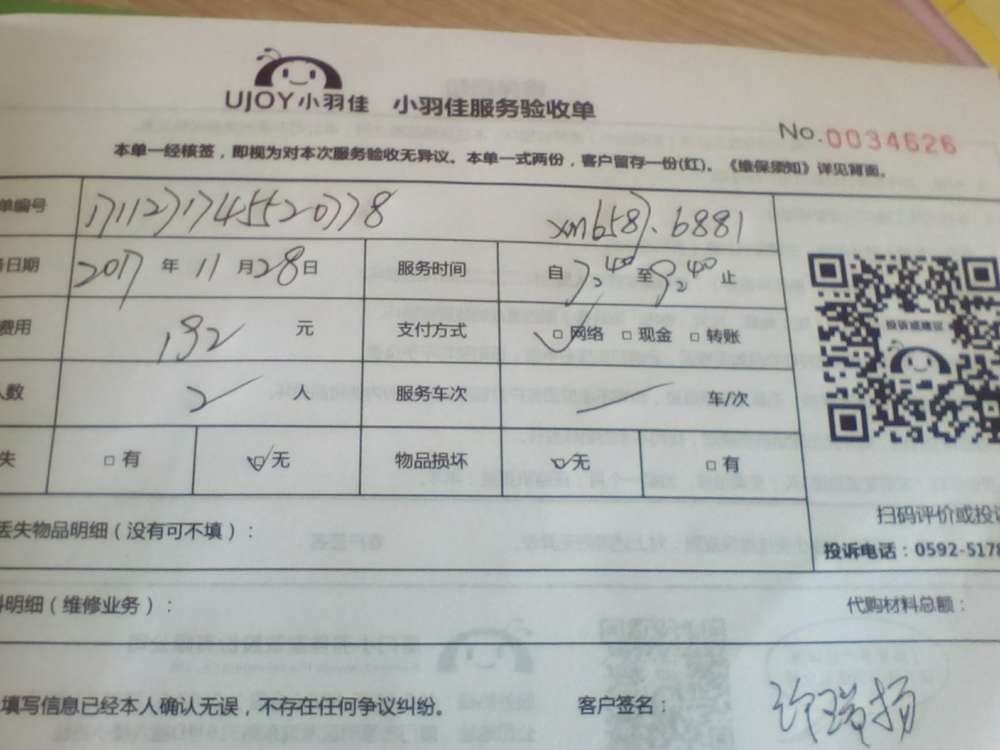 UJOY小羽佳 小羽佳服务验收单
No.0034626
本单一经核签，即视为对本次服务验收无异议。本单一式两份，客户留存一份(红)。《维保须知》详见背面。
单编号 1711271745520778 xm6587.6881
务日期 2017 年 11 月 28 日 服务时间 自 止
费用 192 元 支付方式 ☑网络 □现金 □转账
人数 2 人 服务车次 车/次
失 □有 ☑无 物品损坏 ☑无 □有
投诉或建议
扫码评价或投诉
丢失物品明细（没有可不填）：
投诉电话：0592-5178
料明细（维修业务）： 代购材料总额：
填写信息已经本人确认无误，不存在任何争议纠纷。 客户签名： 许瑞扬